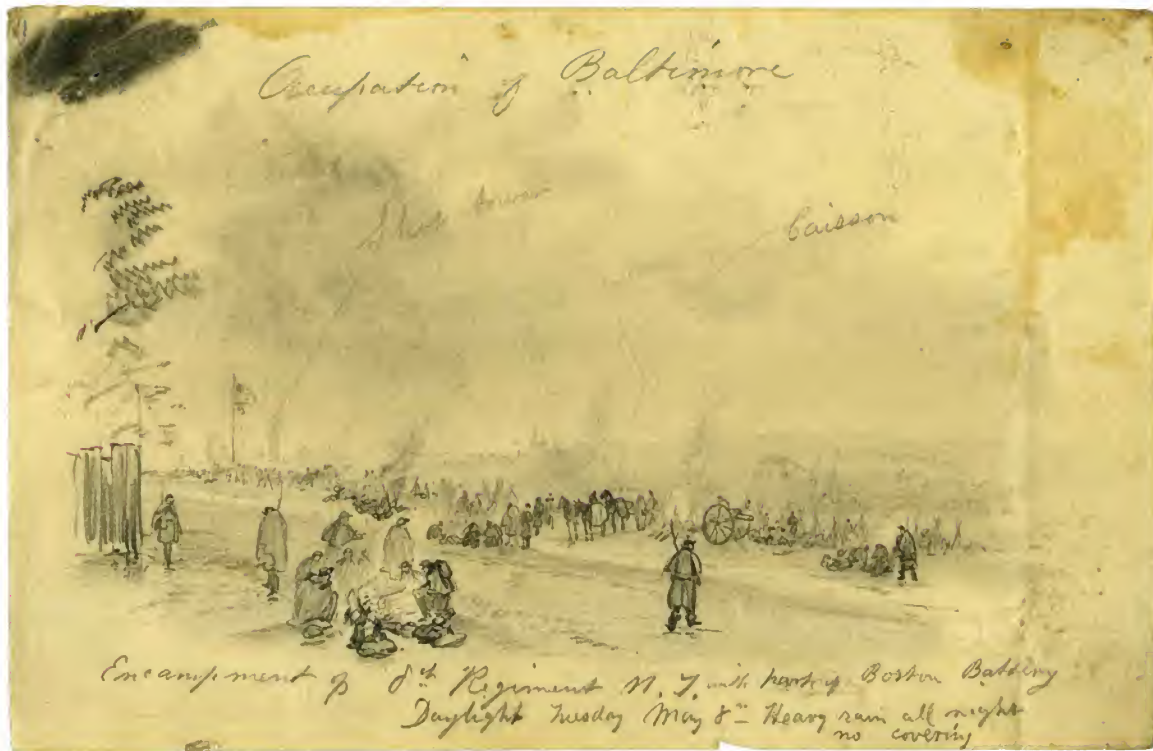 Occupation of Baltimore
Shot tower
Caisson
Encampment of 8th Regiment N.Y. with part of Boston Battery
Daylight Tuesday May 8th Heavy rain all night
no covering